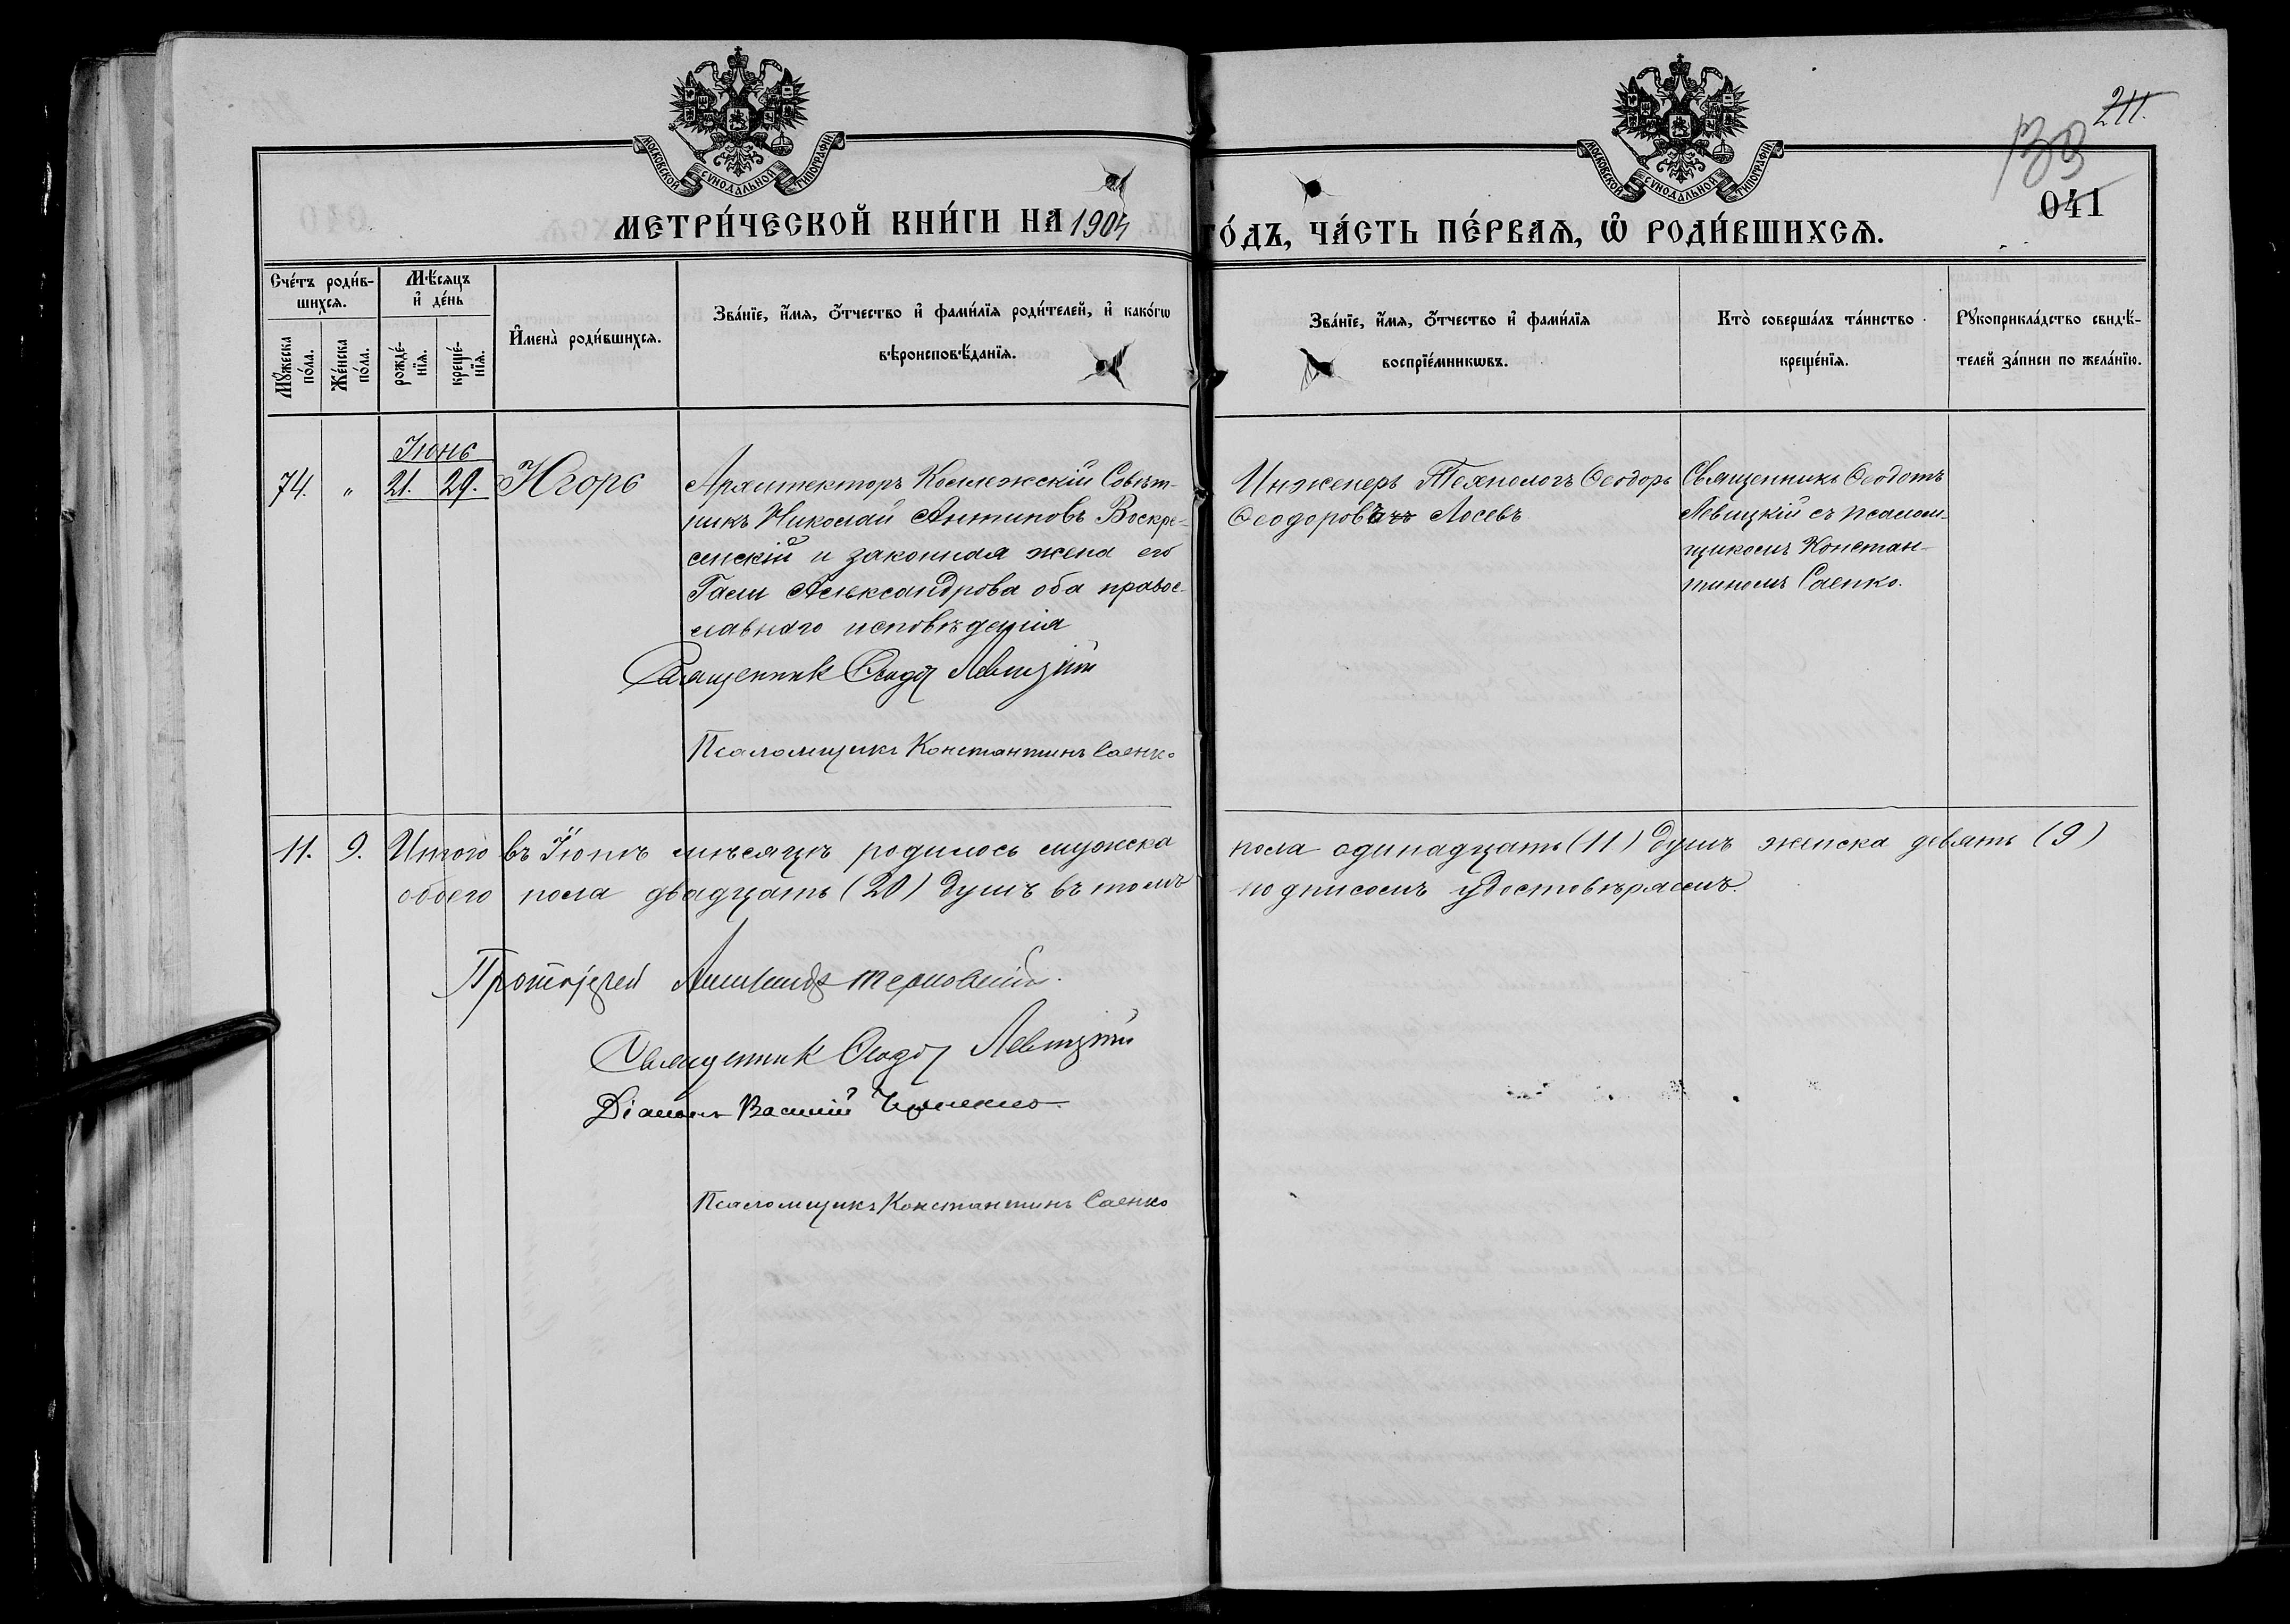 211.
133
041
МОСКОВСКОЙ СУНОДАЛЬНОЙ ТИПОГРАФІИ
МОСКОВСКОЙ СУНОДАЛЬНОЙ ТИПОГРАФІИ
МЕТРИ́ЧЕСКОЙ КНИ́ГИ НА 1904 ГО́ДЪ, ЧА́СТЬ ПЕ́РВАѦ, Ѡ҆ РОДИ́ВШИХСѦ.
Сче́тъ роди́в-
шихсѧ.
Мꙋ́жеска
по́ла.
Же́нска
по́ла.
Мѣ́сѧцъ
и҆ де́нь
рожде́-
нїѧ.
креще́-
нїѧ.
И҆мена̀ роди́вшихсѧ.
Зва́нїе, и҆́мѧ, ѻ҆́тчество и҆ фами́лїѧ роди́телей, и҆ како́гѡ
вѣроисповѣ́данїѧ.
Зва́нїе, и҆́мѧ, ѻ҆́тчество и҆ фами́лїѧ
воспрїе́мникѡвъ.
Кто̀ соверша́лъ та́инство
креще́нїѧ.
Рꙋкоприкла́дство свидѣ́-
телей за́писи по жела́нїю.
Іюнь
74. " 21. 29. Игорь
Архитекторъ Коллежскій Совѣт-
никъ Николай Антиповъ Воскре-
сенскій и законная жена его
Александрова оба правос-
лавнаго исповѣданія
Священникъ Ѳеодотъ Левицкій
Псаломщикъ Константинъ Саенко
Инженеръ Технологъ Ѳеодоръ
Ѳеодоровъ Лосевъ
Священникъ Ѳеодотъ
Левицкій съ псалом-
щикомъ Констан-
тиномъ Саенко.
11. 9. Итого въ Іюнѣ мѣсяцѣ родилось мужеска пола одинадцать (11) душъ женска девять (9)
обоего пола двадцать (20) душъ въ томъ подписомъ удостовѣряемъ.
Протоіерей Александръ Терновскій.
Священникъ Ѳеодотъ Левицкій
Діаконъ Василій
Псаломщикъ Константинъ Саенко